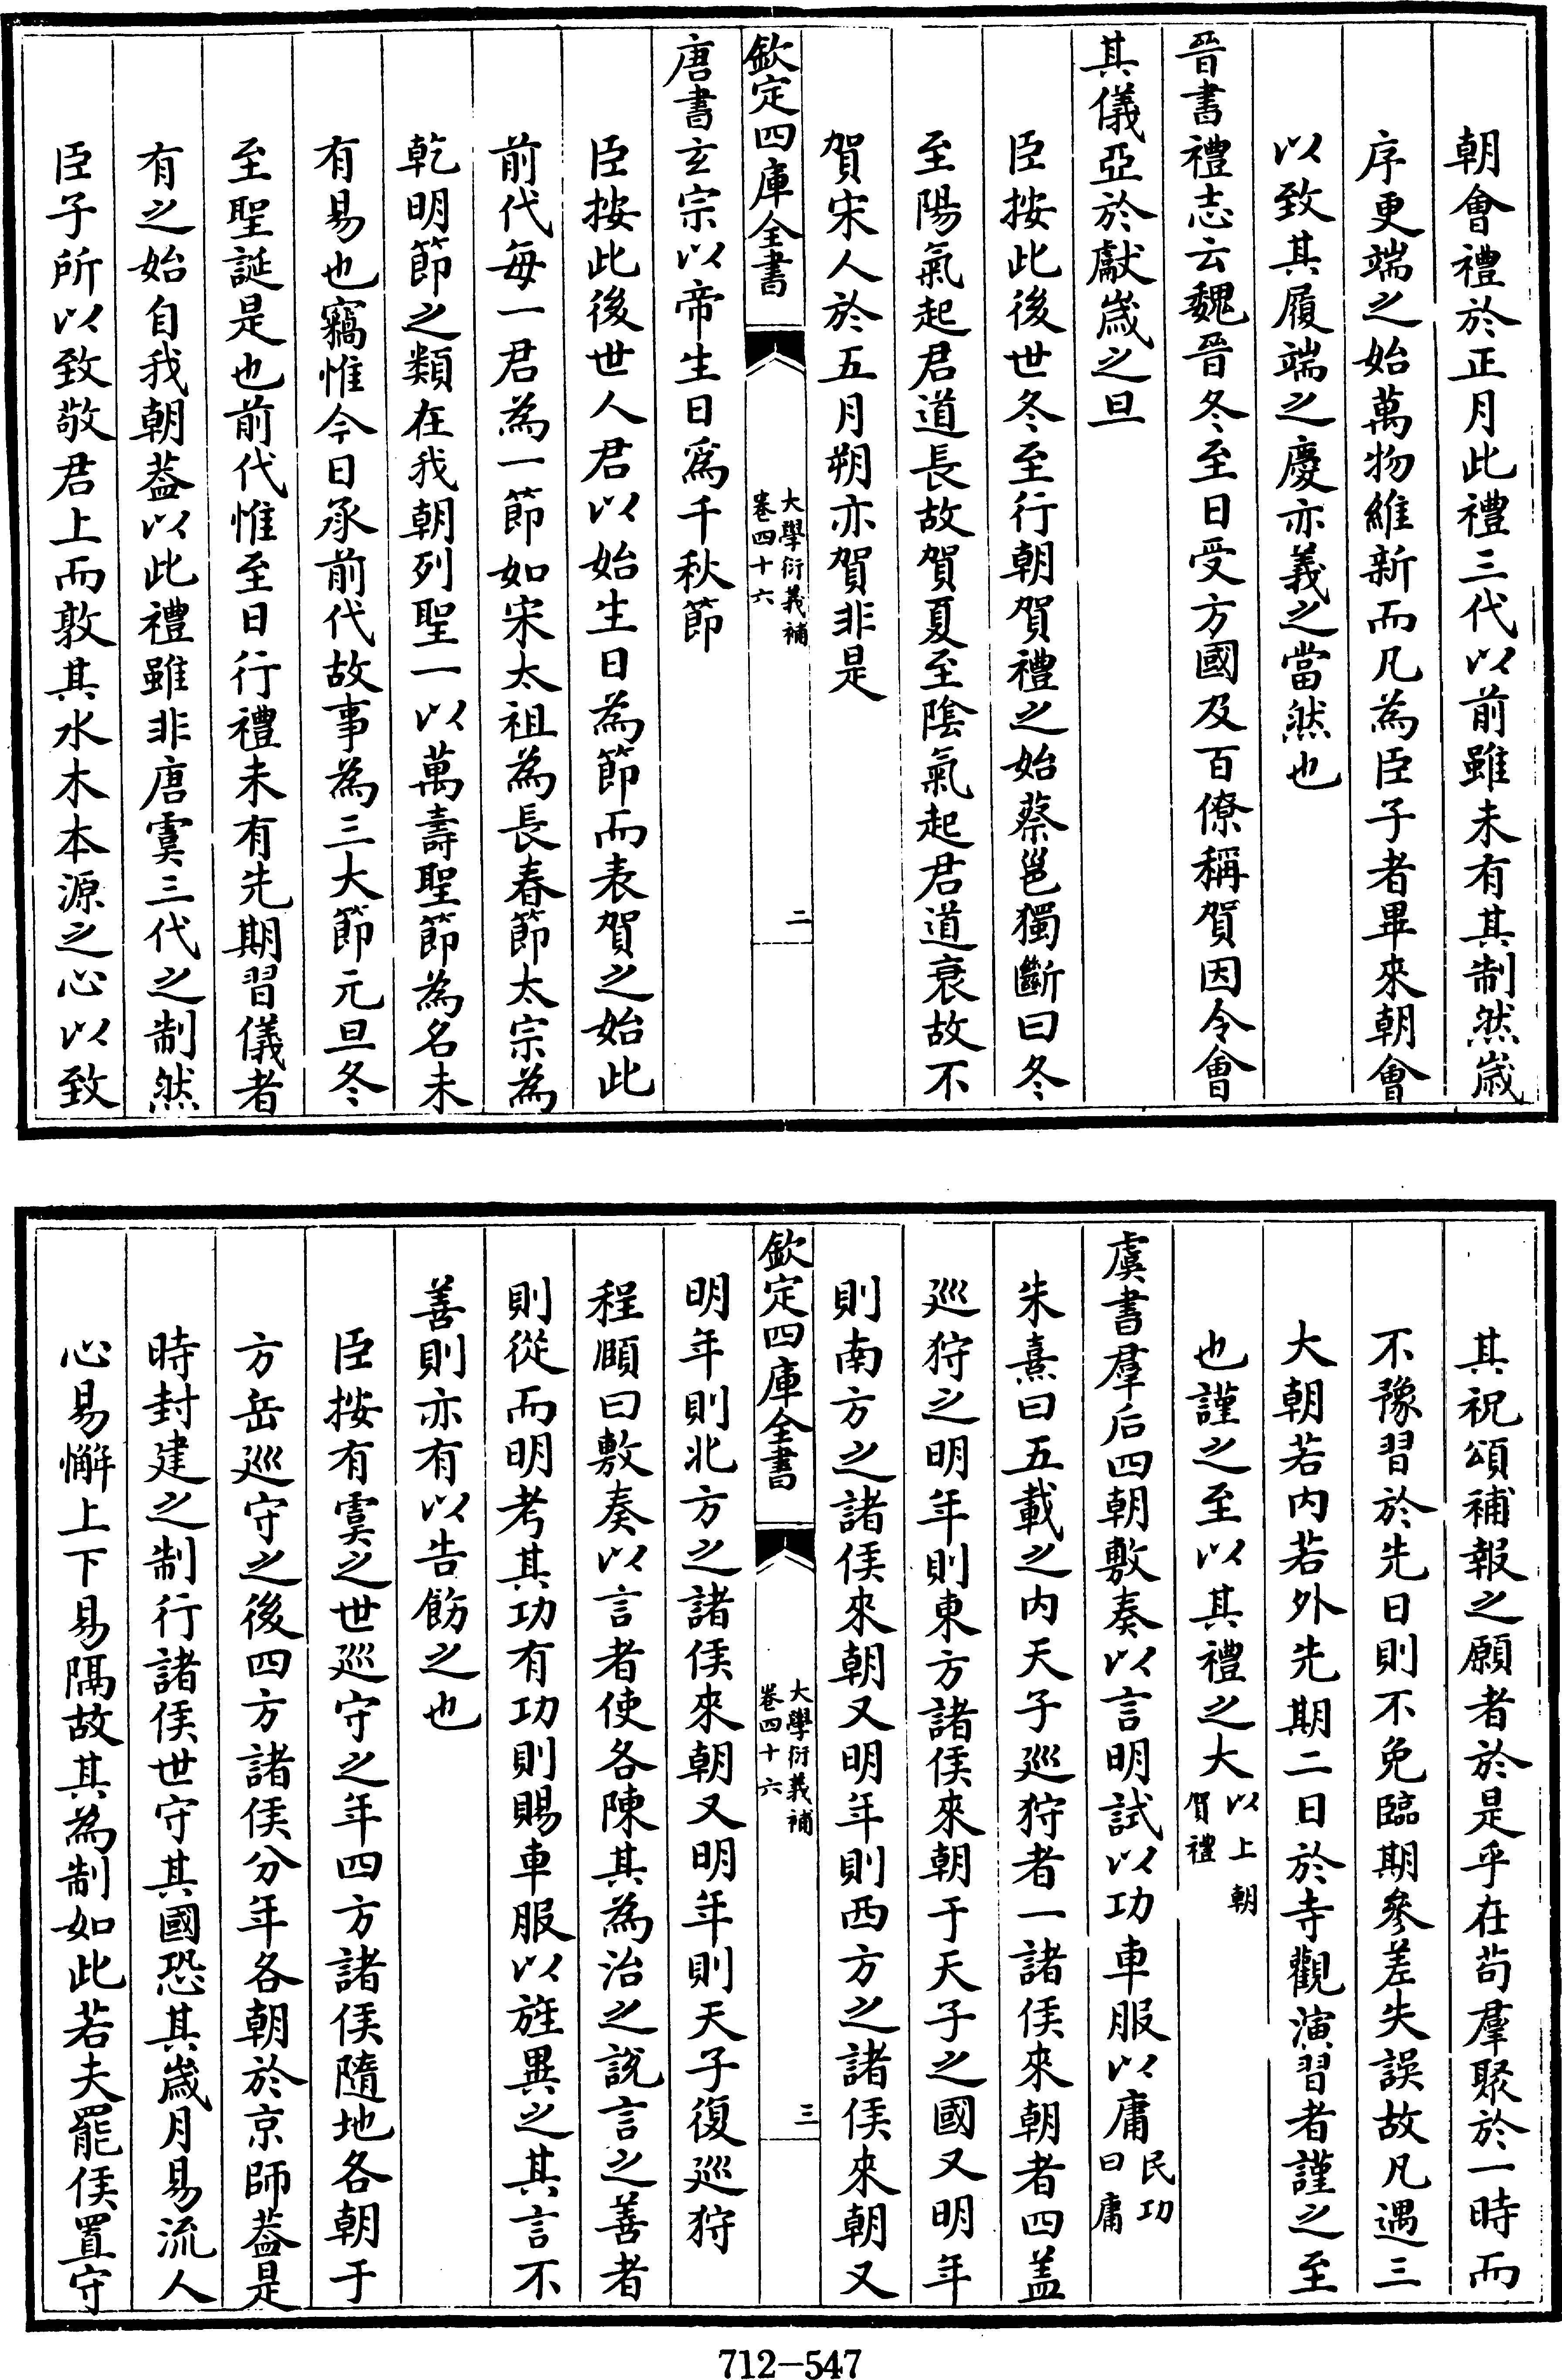 朝會禮於正月此禮三代以前雖未有其制然歲
序更端之始萬物維新而凡為臣子者畢來朝會
以致其履端之慶亦義之當然也
晉書禮志云魏晉冬至日受方國及百僚稱賀因令會
其儀亞於獻歲之旦
臣按此後世冬至行朝賀禮之始蔡邕獨斷曰冬
至陽氣起君道長故賀夏至陰氣起君道衰故不
賀宋人於五月朔亦賀非是
欽定四庫全書
大學衍義補
卷四十六
二
唐書玄宗以帝生日爲千秋節
臣按此後世人君以始生日為節而表賀之始此
前代每一君為一節如宋太祖為長春節太宗為
乾明節之類在我朝列聖一以萬壽聖節為名未
有易也竊惟今日承前代故事為三大節元旦冬
至聖誕是也前代惟至日行禮未有先期習儀者
有之始自我朝葢以此禮雖非唐虞三代之制然
臣子所以致敬君上而敦其水木本源之心以致
其祝頌補報之願者於是乎在茍羣聚於一時而
不豫習於先日則不免臨期參差失誤故凡遇三
大朝若内若外先期二日於寺觀演習者謹之至
也謹之至以其禮之大以上朝
賀禮
虞書羣后四朝敷奏以言明試以功車服以庸民功
曰庸
朱熹曰五載之内天子巡狩者一諸侯來朝者四盖
巡狩之明年則東方諸侯來朝于天子之國又明年
則南方之諸侯來朝又明年則西方之諸侯來朝又
欽定四庫全書
大學衍義補
卷四十六
三
明年則北方之諸侯來朝又明年則天子復巡狩
程頤曰敷奏以言者使各陳其為治之說言之善者
則從而明考其功有功則賜車服以旌異之其言不
善則亦有以告飭之也
臣按有虞之世巡守之年四方諸侯隨地各朝于
方岳巡守之後四方諸侯分年各朝於京師葢是
時封建之制行諸侯世守其國恐其歲月易流人
心易懈上下易隔故其為制如此若夫罷侯置守
712-547